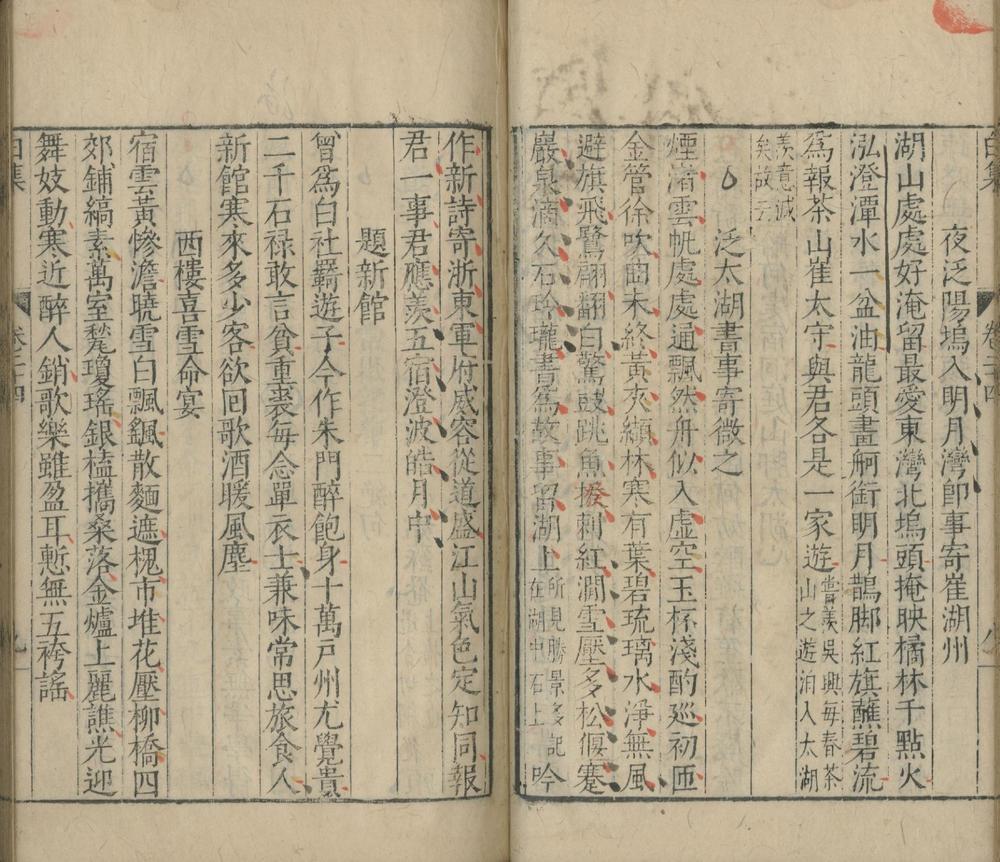 夜泛陽塢入明月灣卽事寄崔湖州
湖山處處好淹留最愛東灣北塢頭掩映橘林千點火
泓澄潭水一盆油龍頭畫舸銜明月鵲脚紅旗蘸碧流
爲報茶山崔太守與君各是一家遊嘗羨吳興每春茶山之遊洎入太湖
羨意減矣故云
泛太湖書事寄微之
煙渚雲帆處處通飄然舟似入虛空玉杯淺酌巡初匝
金管徐吹曲未終黃夾纈林寒有葉碧琉璃水淨無風
避旗飛鷺翩翻白驚鼓跳魚撥剌紅澗雪壓多松偃蹇
巖泉滴久石玲瓏書爲故事留湖上所見勝景多記在湖中石上吟
作新詩寄浙東軍府威容從道盛江山氣色定知同報
君一事君應羨五宿澄波皓月中
題新館
曾爲白社羇遊子今作朱門醉飽身十萬戸州尤覺貴
二千石禄敢言貧重裘每念單衣士兼味常思旅食人
新館寒來多少客欲回歌酒暖風塵
西樓喜雪命宴
宿雲黃慘澹曉雪白飄颻散麵遮槐市堆花壓柳橋四
郊鋪縞素萬室甃瓊瑤銀榼攜桑落金爐上麗譙光迎
舞妓動寒近醉人銷歌樂雖盈耳慙無五袴謠
白集
卷二十四
九